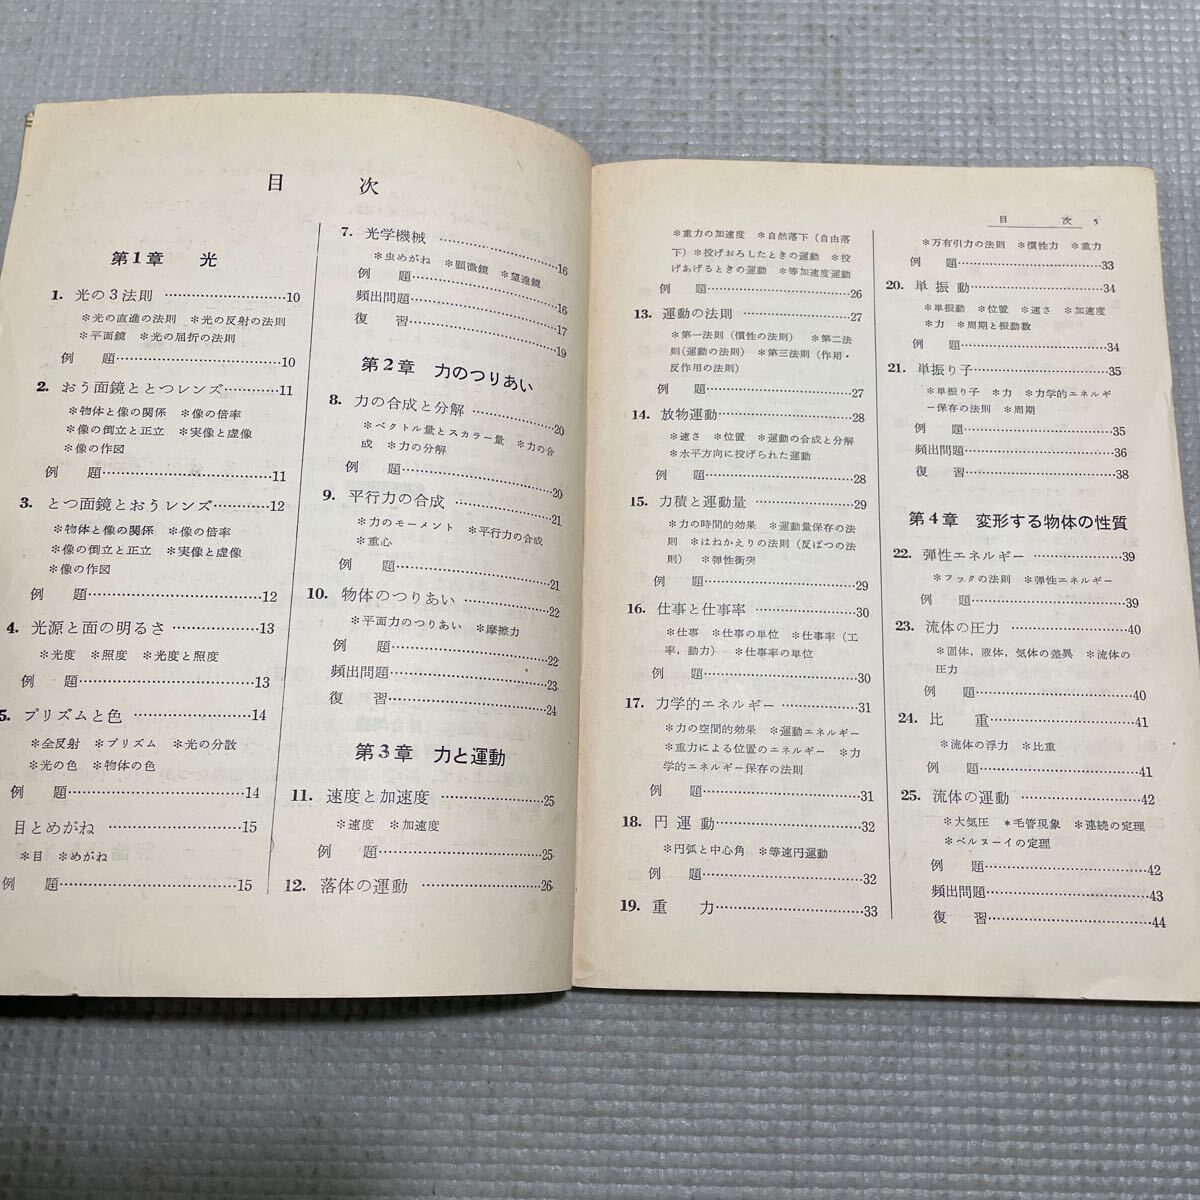 目　　次
第1章　光
1. 光の3法則 ……………………10
＊光の直進の法則　＊光の反射の法則
＊平面鏡　＊光の屈折の法則
例　題……………………10
2. おう面鏡ととつレンズ…………11
＊物体と像の関係　＊像の倍率
＊像の倒立と正立　＊実像と虚像
＊像の作図
例　題……………………11
3. とつ面鏡とおうレンズ…………12
＊物体と像の関係　＊像の倍率
＊像の倒立と正立　＊実像と虚像
＊像の作図
例　題……………………12
4. 光源と面の明るさ………………13
＊光度　＊照度　＊光度と照度
例　題……………………13
5. プリズムと色 …………………14
＊全反射　＊プリズム　＊光の分散
＊光の色　＊物体の色
例　題……………………14
目とめがね ……………………15
＊目　＊めがね
例　題……………………15
7. 光学機械 ……………………16
＊虫めがね　＊顕微鏡　＊望遠鏡
例　題……………………16
頻出問題……………………17
復　習……………………19
第2章　力のつりあい
8. 力の合成と分解 ………………20
＊ベクトル量とスカラー量　＊力の合
成　＊力の分解
例　題……………………20
9. 平行力の合成 …………………21
＊力のモーメント　＊平行力の合成
＊重心
例　題……………………21
10. 物体のつりあい ………………22
＊平面力のつりあい　＊摩擦力
例　題……………………22
頻出問題……………………23
復　習……………………24
第3章　力と運動
11. 速度と加速度 …………………25
＊速度　＊加速度
例　題……………………25
12. 落体の運動 ……………………26
目　　次　5
＊重力の加速度　＊自然落下（自由落
下）＊投げおろしたときの運動　＊投
げあげるときの運動　＊等加速度運動
例　題……………………26
13. 運動の法則……………………27
＊第一法則（慣性の法則）　＊第二法
則（運動の法則）　＊第三法則（作用・
反作用の法則）
例　題……………………27
14. 放物運動………………………28
＊速さ　＊位置　＊運動の合成と分解
＊水平方向に投げられた運動
例　題……………………28
15. 力積と運動量 …………………29
＊力の時間的効果　＊運動量保存の法
則　＊はねかえりの法則（反ぱつの法
則）　＊弾性衝突
例　題……………………29
16. 仕事と仕事率 …………………30
＊仕事　＊仕事の単位　＊仕事率（工
率，動力）　＊仕事率の単位
例　題……………………30
17. 力学的エネルギー ……………31
＊力の空間的効果　＊運動エネルギー
＊重力による位置のエネルギー　＊力
学的エネルギー保存の法則
例　題……………………31
18. 円運動…………………………32
＊円弧と中心角　＊等速円運動
例　題……………………32
19. 重　力…………………………33
＊万有引力の法則　＊慣性力　＊重力
例　題……………………33
20. 単振動…………………………34
＊単振動　＊位置　＊速さ　＊加速度
＊力　＊周期と振動数
例　題……………………34
21. 単振り子………………………35
＊単振り子　＊力　＊力学的エネルギ
ー保存の法則　＊周期
例　題……………………35
頻出問題……………………36
復　習……………………38
第4章　変形する物体の性質
22. 弾性エネルギー ………………39
＊フックの法則　＊弾性エネルギー
例　題……………………39
23. 流体の圧力 ……………………40
＊固体，液体，気体の差異　＊流体の
圧力
例　題……………………40
24. 比　重…………………………41
＊流体の浮力　＊比重
例　題……………………41
25. 流体の運動 ……………………42
＊大気圧　＊毛管現象　＊連続の定理
＊ベルヌーイの定理
例　題……………………42
頻出問題……………………43
復　習……………………44